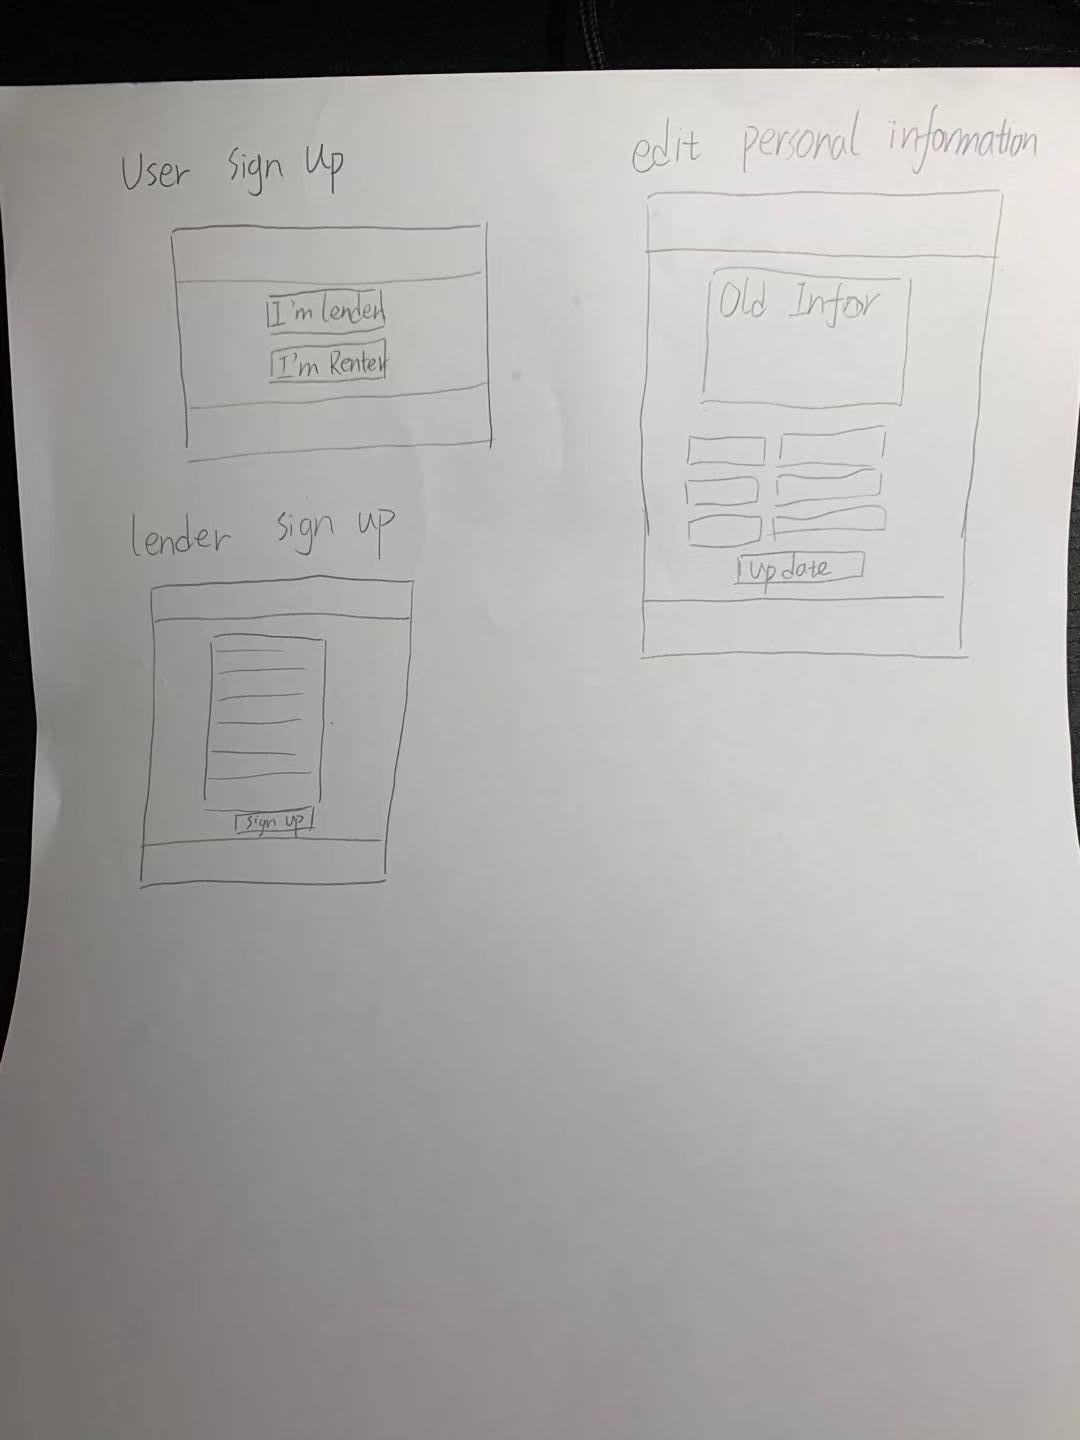 User Sign Up
I'm lender
I'm Renter
lender sign up
sign up
edit personal information
Old Infor
update